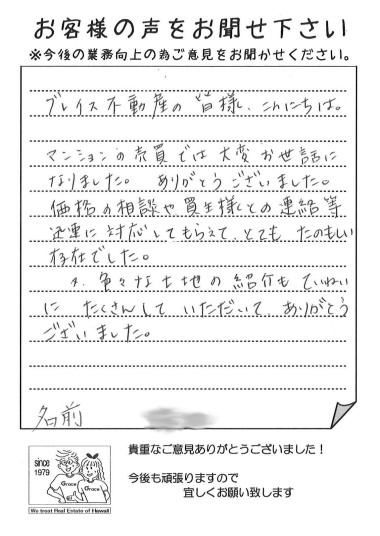 お客様の声をお聞せ下さい
※今後の業務向上の為ご意見をお聞かせください。
ブレイス不動産の皆様、こんにちは。
マンションの売買では大変お世話に
なりました。ありがとうございました。
価格の相談や買主様との連絡等
迅速に対応してもらえて、とてもたのもしい
存在でした。
又、色々な土地の紹介もていねい
に たくさんして いただいて ありがとう
ございました。
名前
since
1979
Grace
Grace
We treat Real Estate of Hawaii
貴重なご意見ありがとうございました！
今後も頑張りますので
宜しくお願い致します